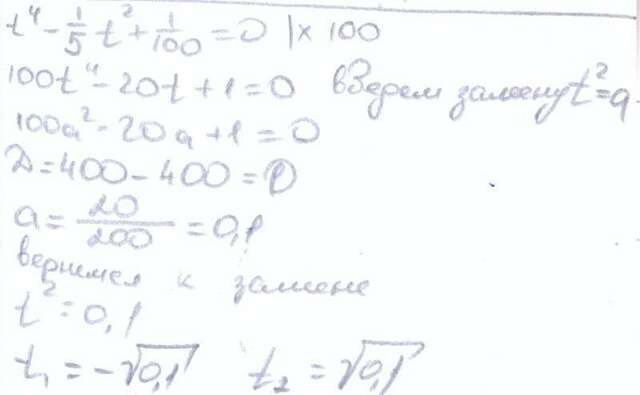 t⁴ - 1/5 t² + 1/100 = 0 | x 100
100t⁴ - 20t + 1 = 0 введем замену t² = a
100a² - 20a + 1 = 0
D = 400 - 400 = 0
a = 20/200 = 0,1
вернемся к замене
t² = 0,1
t₁ = -√0,1 t₂ = √0,1